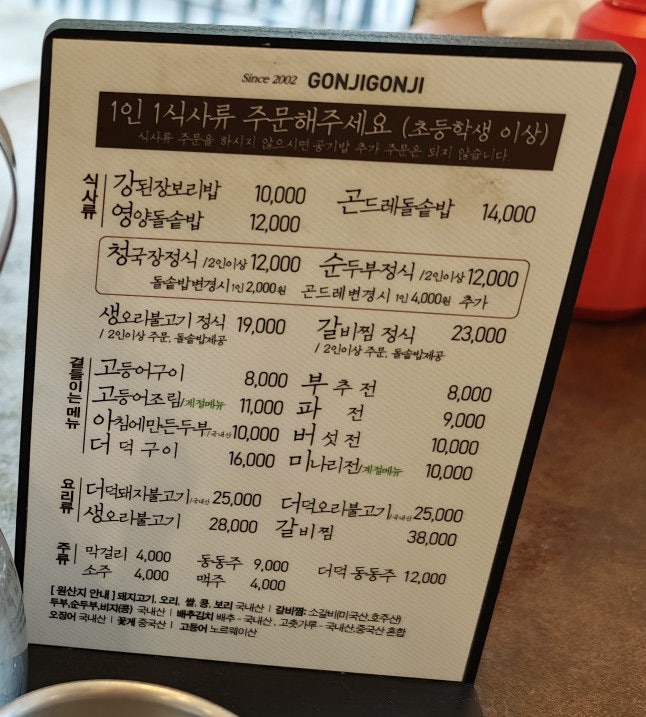 Since 2002 GONJIGONJI
1인 1식사류 주문해주세요 (초등학생 이상)
식사류 주문을 하시지 않으시면 공기밥 추가 주문은 되지 않습니다.
식사류
강된장보리밥 10,000 곤드레돌솥밥 14,000
영양돌솥밥 12,000
청국장정식 /2인이상 12,000 순두부정식 /2인이상 12,000
돌솥밥변경시 1인 2,000원 곤드레변경시 1인 4,000원 추가
생오리불고기 정식 19,000 갈비찜 정식 23,000
/ 2인이상 주문, 돌솥밥제공 / 2인이상 주문, 돌솥밥제공
곁들이는메뉴
고등어구이 8,000 부추전 8,000
고등어조림/계절메뉴 11,000 파 전 9,000
아침에만든두부/국내산 10,000 버섯전 10,000
더덕구이 16,000 미나리전/계절메뉴 10,000
요리류
더덕돼지불고기/국내산 25,000 더덕오리불고기/국내산 25,000
생오리불고기 28,000 갈비찜 38,000
주류
막걸리 4,000 동동주 9,000 더덕 동동주 12,000
소주 4,000 맥주 4,000
[ 원산지 안내 ] 돼지고기, 오리, 쌀, 콩, 보리 국내산 | 갈비찜: 소갈비(미국산,호주산)
두부,순두부,비지(콩) 국내산 | 배추김치 배추 - 국내산 , 고춧가루 - 국내산,중국산 혼합
오징어 국내산 | 꽃게 중국산 | 고등어 노르웨이산